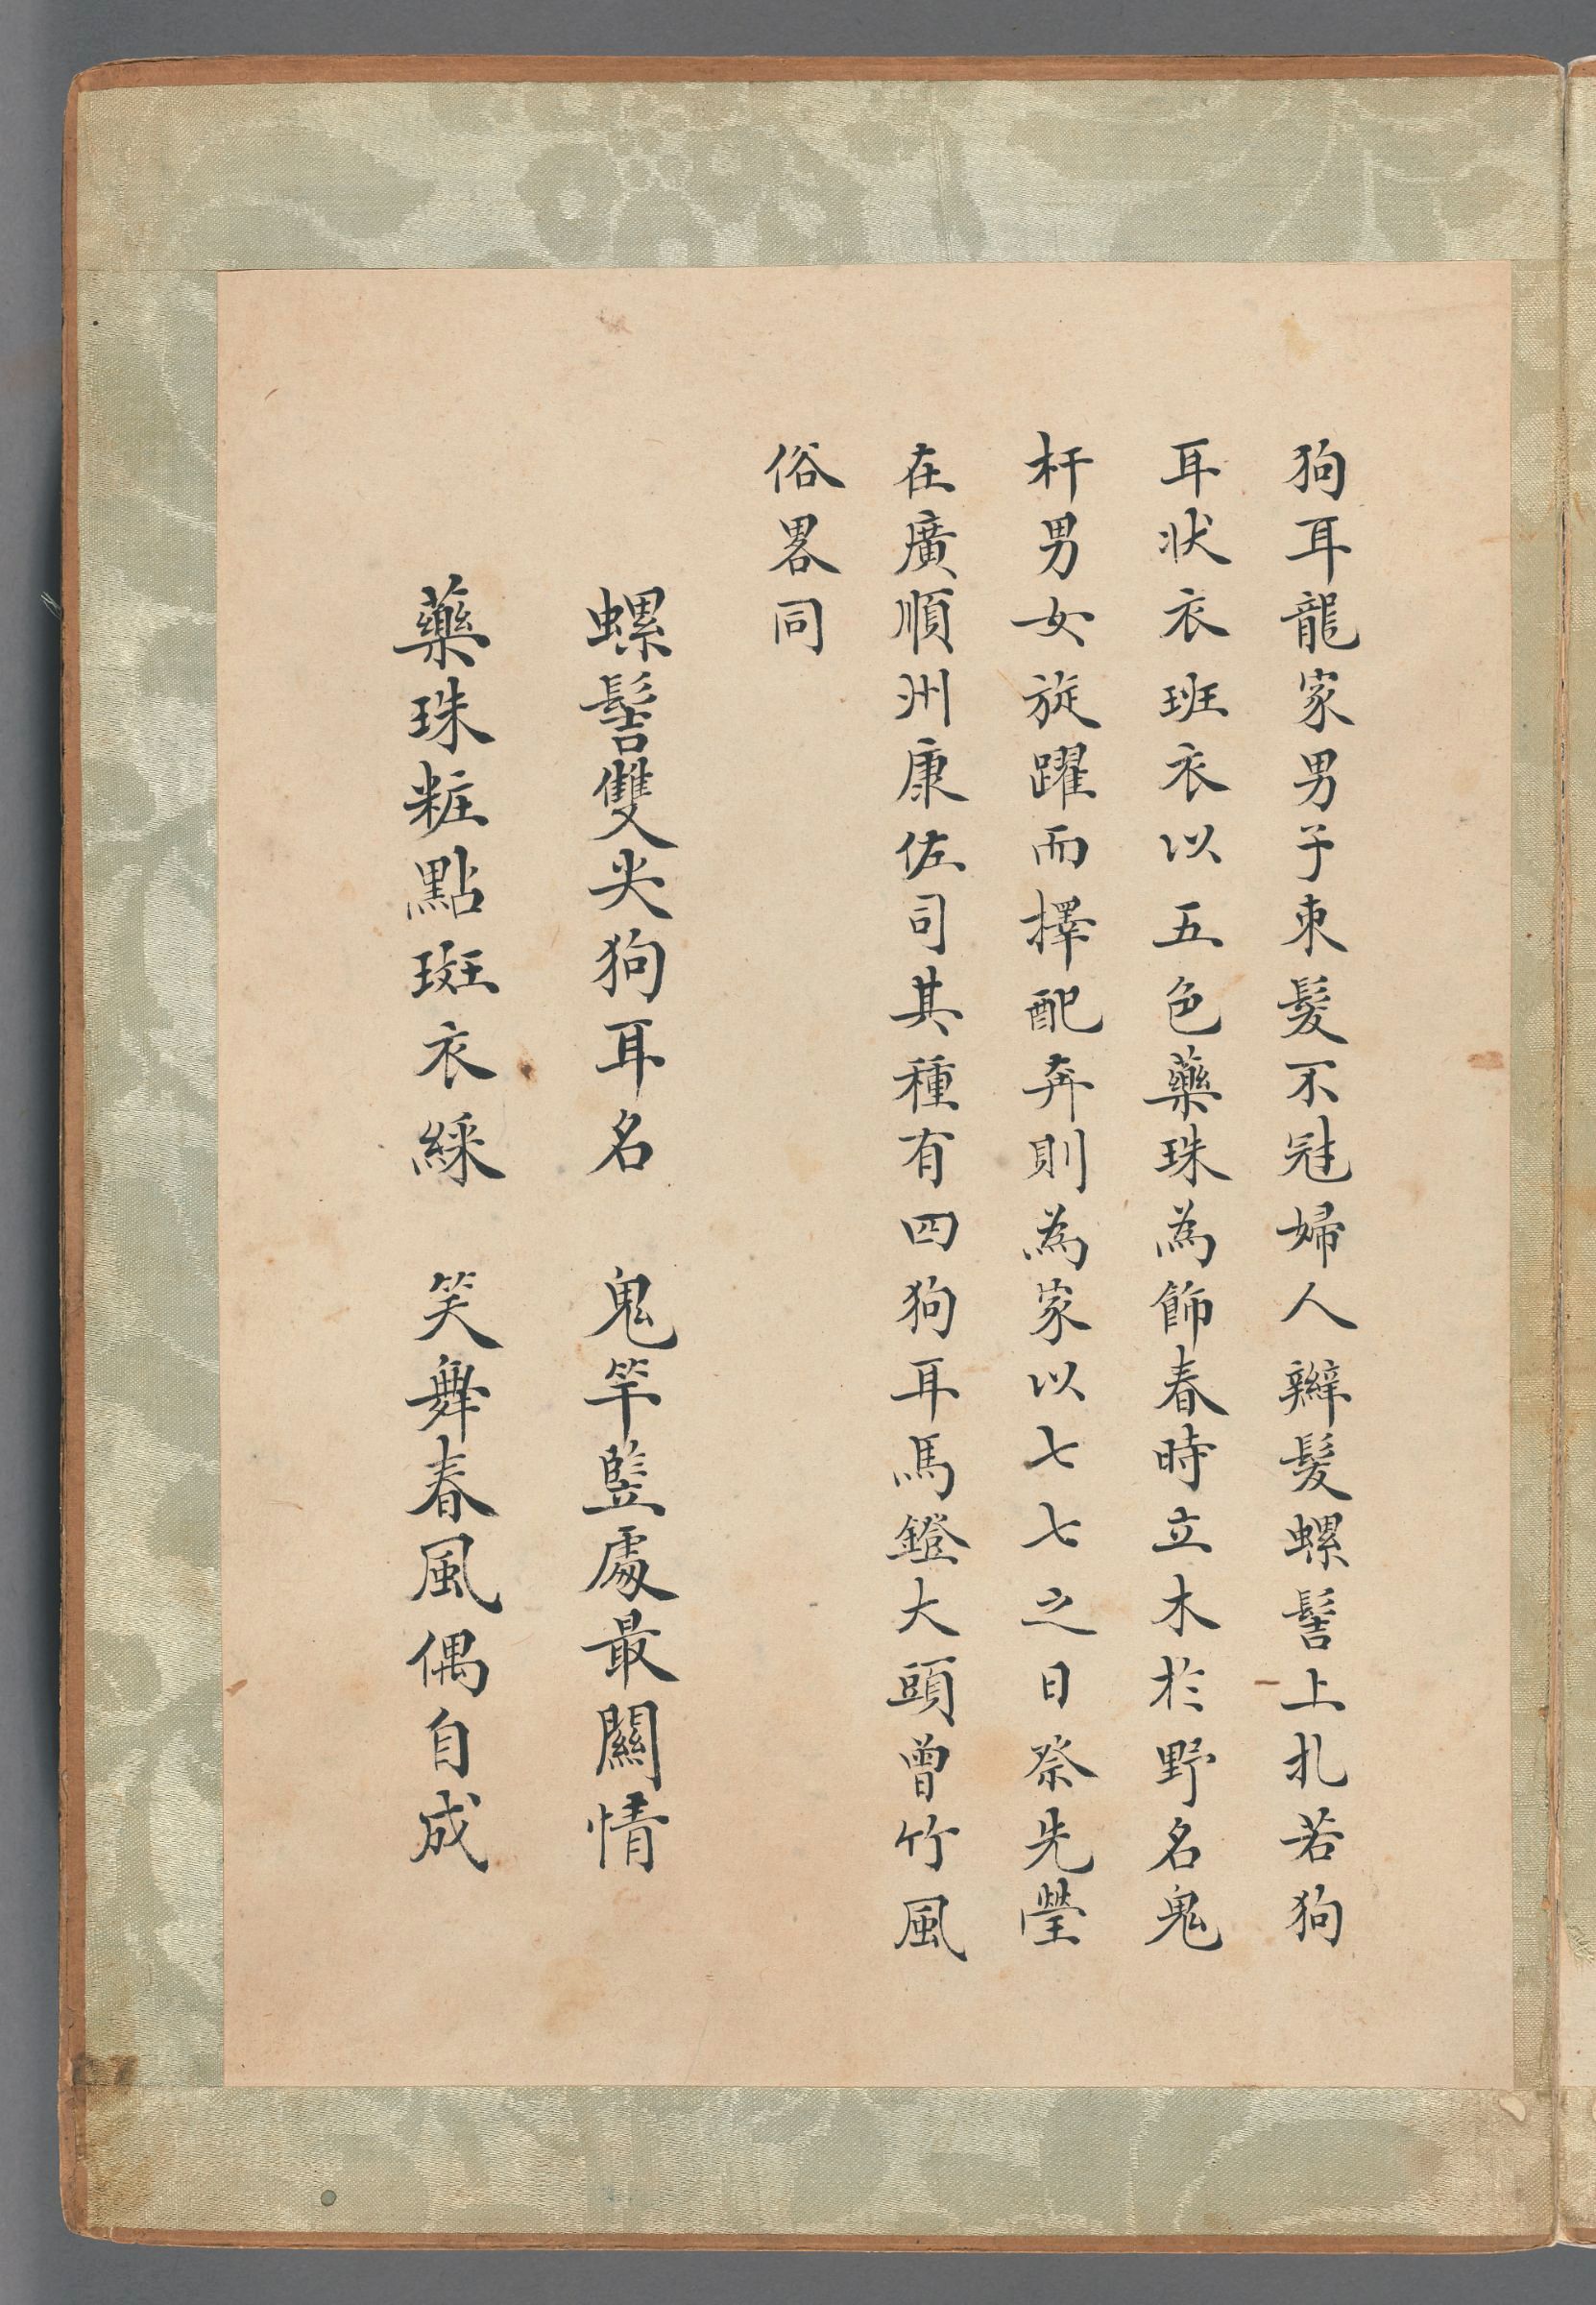 狗耳龍家男子束髮不冠婦人辮髮螺髻上扎若狗
耳狀衣班衣以五色藥珠為飾春時立木於野名鬼
杆男女旋躍而擇配奔則為家以七七之日祭先塋
在廣順州康佐司其種有四狗耳馬鐙大頭曾竹風
俗畧同
螺髻雙尖狗耳名 鬼竿豎處最關情
藥珠粧點斑衣綵 笑舞春風偶自成